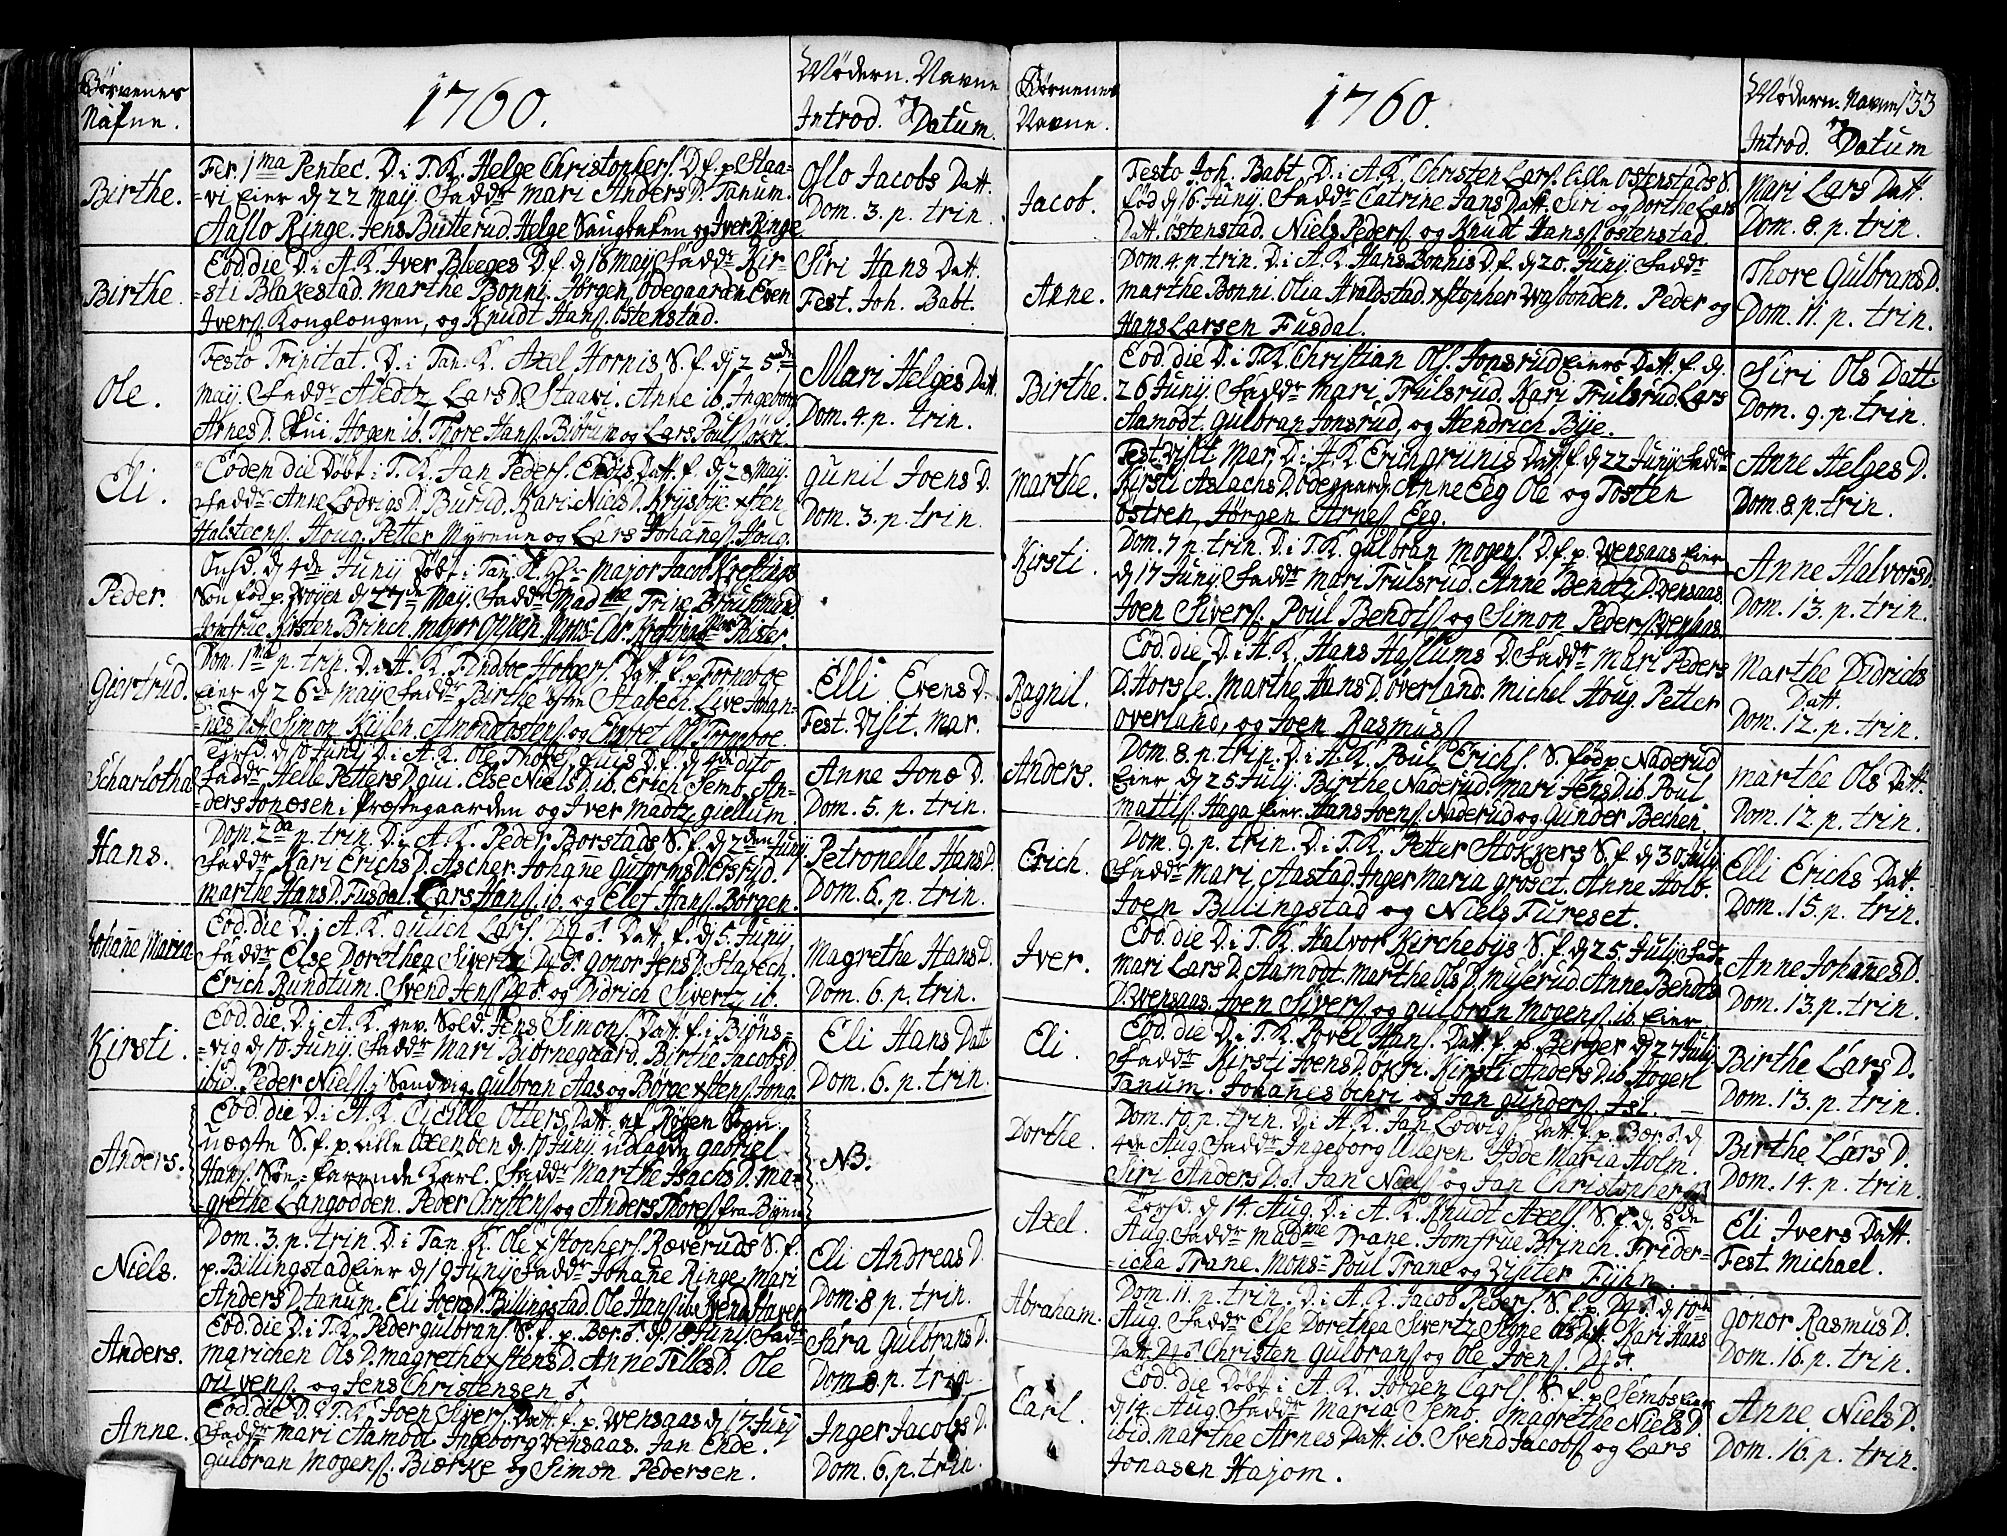 Børnenes
Nafne.
1760.
Mødern. Navne
og
Introd. Datum.
Birthe.
Fer. 1ma Pentec. D. i T. K. Helge Christophers. D. f. p. Staa-
=vi Eier d. 22 May. Faddr Mari Anders D. Tanum.
Aaslo Ringe. Jens Butterud. Helge Saugbaken og Iver Ringe
Oslo Jacobs Datt.
Dom. 3. p. trin.
Birthe.
Eod. die D. i A. K. Iver Bleeges D. f. d. 18 May Faddr Kir-
=sti Blakestad. Marthe Bonni. Jørgen Ødegaarden Even
Ivers. Konglongen, og Knudt Hans. Østenstad.
Siri Hans Datt.
Fest. Joh. Babt.
Ole.
Festo Trinitat. D. i Tan. K. Axel Hornis S. f. d. 25de
May. Faddr Lars D. Staavi. Anne ib. Ingeborg
Arnes D. Skui. Hogen ib. Thore Hans. Biørum og Lars Pouls. Økri
Mari Helges Datt.
Dom. 4. p. trin.
Eli.
Eoden die Døbt i T. K. Jan Peders. Datt. f. d. 28 May.
Faddr Anne Lodvigs D. Burud. Kari Niels D. Krysbye xsten
Halsteens. Houg. Petter Myrene og Lars Johannes. Houg.
Gunil Joens D.
Dom. 3. p. trin.
Peder.
Onsd. d. 4de Juny Døbt i Tan. K. Hr Major Jacob Kreftings
Søn fød p. Wøyen d. 27de May. Faddr Madme Trine
Jomfrue Kirsten Brinch. Major
Giertrud.
Dom. 1ma p. trin. D. i H. K. Findboe Holgers. Datt. f. p. Forneboe
Eier d. 26de May Faddr Birthe Østre Stabech. Live Johan-
=nes Datt. Simon Kiilen. Amund Tostens. og Ols. Forneboe.
Elli Evens D.
Fest. Visit. Mar.
Scharlotha
Tirsd. d. 10 Juny D. i A. K. Ole Thores. D. f. d. 4de dito
Faddr Helle Petters D. Gui. Else Niels D. ib. Erich Semb. An-
ders Jonæsen i Præstegaarden og Iver Madtz. Giellum.
Anne Jonæ D.
Dom. 5. p. trin.
Hans.
Dom. 2da p. trin. D. i A. K. Peder Borstads S. f. d. 2den Juny
Faddr Kari Erichs D. Ascher. Johanne Gutorms D. Ersrud.
Marthe Hans D. Fusdal. Lars Hans. ib. og Elef Hans. Børgen.
Petronelle Hans D.
Dom. 6. p. trin.
Johanne Maria
Eod. die D. i A. K. Gulich Lars. Datt. f. d. 5. Juny
Faddr Else Dorethea Sivertz D. Gonor Jens D. Stabech.
Erich Rundtum. Svend Jens. og Didrich Sivertz ib.
Magrethe Hans D.
Dom. 6. p. trin.
Kirsti.
Eod. die D. i A. K. gev. Sold. Jens Simons. Datt. f. i Biøns-
=vig d. 10 Juny. Faddr Mari Biørnegaard. Birthe Jacobs D.
ibid. Peder Niels. i Sandvig. Gulbran Aas og Børge xstens. Jong.
Eli Hans Datt.
Dom. 6. p. trin.
Anders.
Eod. die D. i A. K. Cicille Olters Datt. af Røgen Sogn
uægte S. f. p. Lille Oxenøen d. 10 Juny. udlagdt Gabriel
Hans. Søe-farende Karl. Faddr Marthe Isachs D. Ma-
grethe Langodden. Peder Christens. og Anders Thores. fra Byen
NB.
Niels.
Dom. 3. p. trin. D. i Tan. K. Ole xstophers. Ræveruds S. f.
p. Billingstad Eier d. 19 Juny Faddr Johane Ringe. Mari
Anders D. Tanum. Eli Joens D. Billingstad. Ole Hans. ib.
Eli Andreas D.
Dom. 8 p. trin.
Anders.
Eod. die D. i T. K. Peder Gulbrans. S. f. p. Bær. d. 18 Juny Faddr
Marichen Ols D. Magrethe xstens D. Anne Tilles D. Ole
og Jens Christensen
Sara Gulbrans D.
Dom. 8. p. trin.
Anne.
Eod. die D. i T. K. Joen Sivers. Datt. f. p. Wensaas d. 17 Juny
Faddr Mari Aamodt. Ingeborg Wensaas. Jan Ende.
Gulbran Mogens. Biærke og Simon Pedersen.
Inger Jacobs D.
Dom. 6. p. trin.
Børnenes
Navne.
1760.
Mødern. Navne 133
og
Introd. Datum
Jacob.
Festo Joh. Babt. D. i A. K. Christen Lars. Lille Østenstads S.
fød d. 16 Juny. Faddr Catrine Jans Datt. Siri og Dorthe Lars
Datt. Østenstad. Niels Peders. og Knudt Hans. Østenstad.
Mari Lars Datt.
Dom. 8. p. trin.
Anne.
Dom. 4. p. trin. D. i A. K. Hans Bonnis D. f. d. 20. Juny. Faddr
Marthe Bonni. Olia Hvalstad. xstopher Wasbonden. Peder og
Hans Larsen Fusdal.
Thore Gulbrans D.
Dom. 11. p. trin.
Birthe.
Eod. die D. i T. K. Christian Ols. Jonsrud Eiers Datt. f. d.
26 Juny. Faddr Mari Trulsrud. Kari Trulsrud. Lars
Aamodt. Gulbran Jonsrud, og Hendrich Bye.
Siri Ols Datt.
Dom. 9. p. trin.
Marthe.
Fest. Visit. Mar. D. i A. K. Erich Grinis Datt. f. d. 22 Juny Faddr
Kirsti Aslachs D. Ødegaard. Anne Eeg Ole og Tosten
Østren, Jørgen Arnes. Eeg.
Anne Helges D.
Dom. 8. p. trin.
Kirsti.
Dom. 7 p. trin. D. i T. K. Gulbran Mogens. D. f. p. Wensaas Eier
d. 17 Juny Faddr Mari Trulsrud. Anne Bendtz D. Wensaas.
Joen Sivers. Poul Bendts. og Simon Peders. Wensaas.
Anne Halvors D.
Dom. 13. p. trin.
Ragnil.
Eod. die D. i A. K. Hans Haslums D. Faddr Mari Peders
D. Horsle. Marthe Hans D. Overland. Michel Houg. Petter
Overland, og Joen Rasmus.
Marthe Didrichs
Datt.
Dom. 12. p. trin.
Anders.
Dom. 8. p. trin. D. i A. K. Poul Erichs. S. fød p. Naderud
Eier d. 25 July. Birthe Naderud. Mari Jens D. ib. Poul
Mattis. Haga Eier. Hans Joens. Naderud og Gunder Bechen.
Marthe Ols Datt.
Dom. 12 p. trin.
Erich.
Dom. 9. p. trin. D. i T. K. Peter Stokkers S. f. d. 30 July
Faddr Mari Aastad. Inger Maria Groset. Anne Holb.
Joen Billingstad og Niels Fureset.
Elli Erichs Datt.
Dom. 15. p. trin.
Iver.
Eod. die D. i T. K. Halvor Kirchebÿs S. f. d. 25. July Fadr
Mari Lars D. Aamodt. Marthe Ols D. Myerud. Anne Bendts
D. Wensaas. Joen Sivers. og Gulbran Mogens. ib. Eier
Anne Johanes D.
Dom. 13. p. trin.
Eli.
Eod. die D. i T. K. Povel Hans. Datt. f. p. Berger d. 27 July
Faddr Kirsti Joens D. Økri. Kirsti Anders D. ib. Hogen
Tanum. Johannes Øchri og Jan Gunders. Isi.
Birthe Lars D.
Dom. 13. p. trin.
Dorthe.
Dom. 10. p. trin. D. i A. K. Jan Lodvigs. Datt. f. p. Bær. d.
4de Aug. Faddr Ingeborg Ulleren. Maria Holm.
Siri Anders D. Jan Niels. og Jan Christophers.
Birthe Lars D.
Dom. 14. p. trin.
Axel.
Torsd. d. 14. Aug. D. i A. K. Knudt Axels. S. f. d. 8de
Aug. Faddr Madme Trane. Jomfrue Brinch. Frider-
=icha Trane. Monsr Poul Trane og Fÿhn.
Eli Ivers Datt.
Fest. Michael.
Abraham.
Dom. 11. p. trin. D. i A. K. Jacob Peders. S. f. p. d. 10de
Aug. Faddr Else Dorethea Sivertz. Signe Ols Datt. Kari Hans
Datt. Christen Gulbrans. og Ole Joens.
Gonor Rasmus D.
Dom. 16. p. trin.
Carl.
Eod. die Døbt i A. K. Jørgen Carls. S. f. p. Sembs Eier
d. 14. Aug. Faddr Maria Semb. Magrethe Niels D.
ibid. Marthe Arnes Datt. ib. Svend Jacobs. og Lars
Jonasen Hajom.
Anne Niels D.
Dom. 16. p. trin.